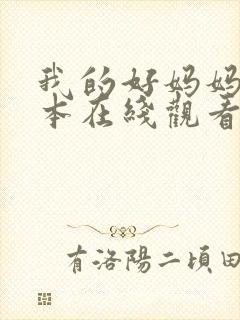 我的好妈妈
本在綫觀看
有洛陽二頃田